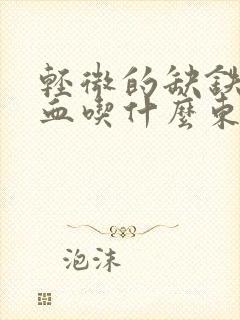 輕微的缺鉄
血喫什麼東
泡沫